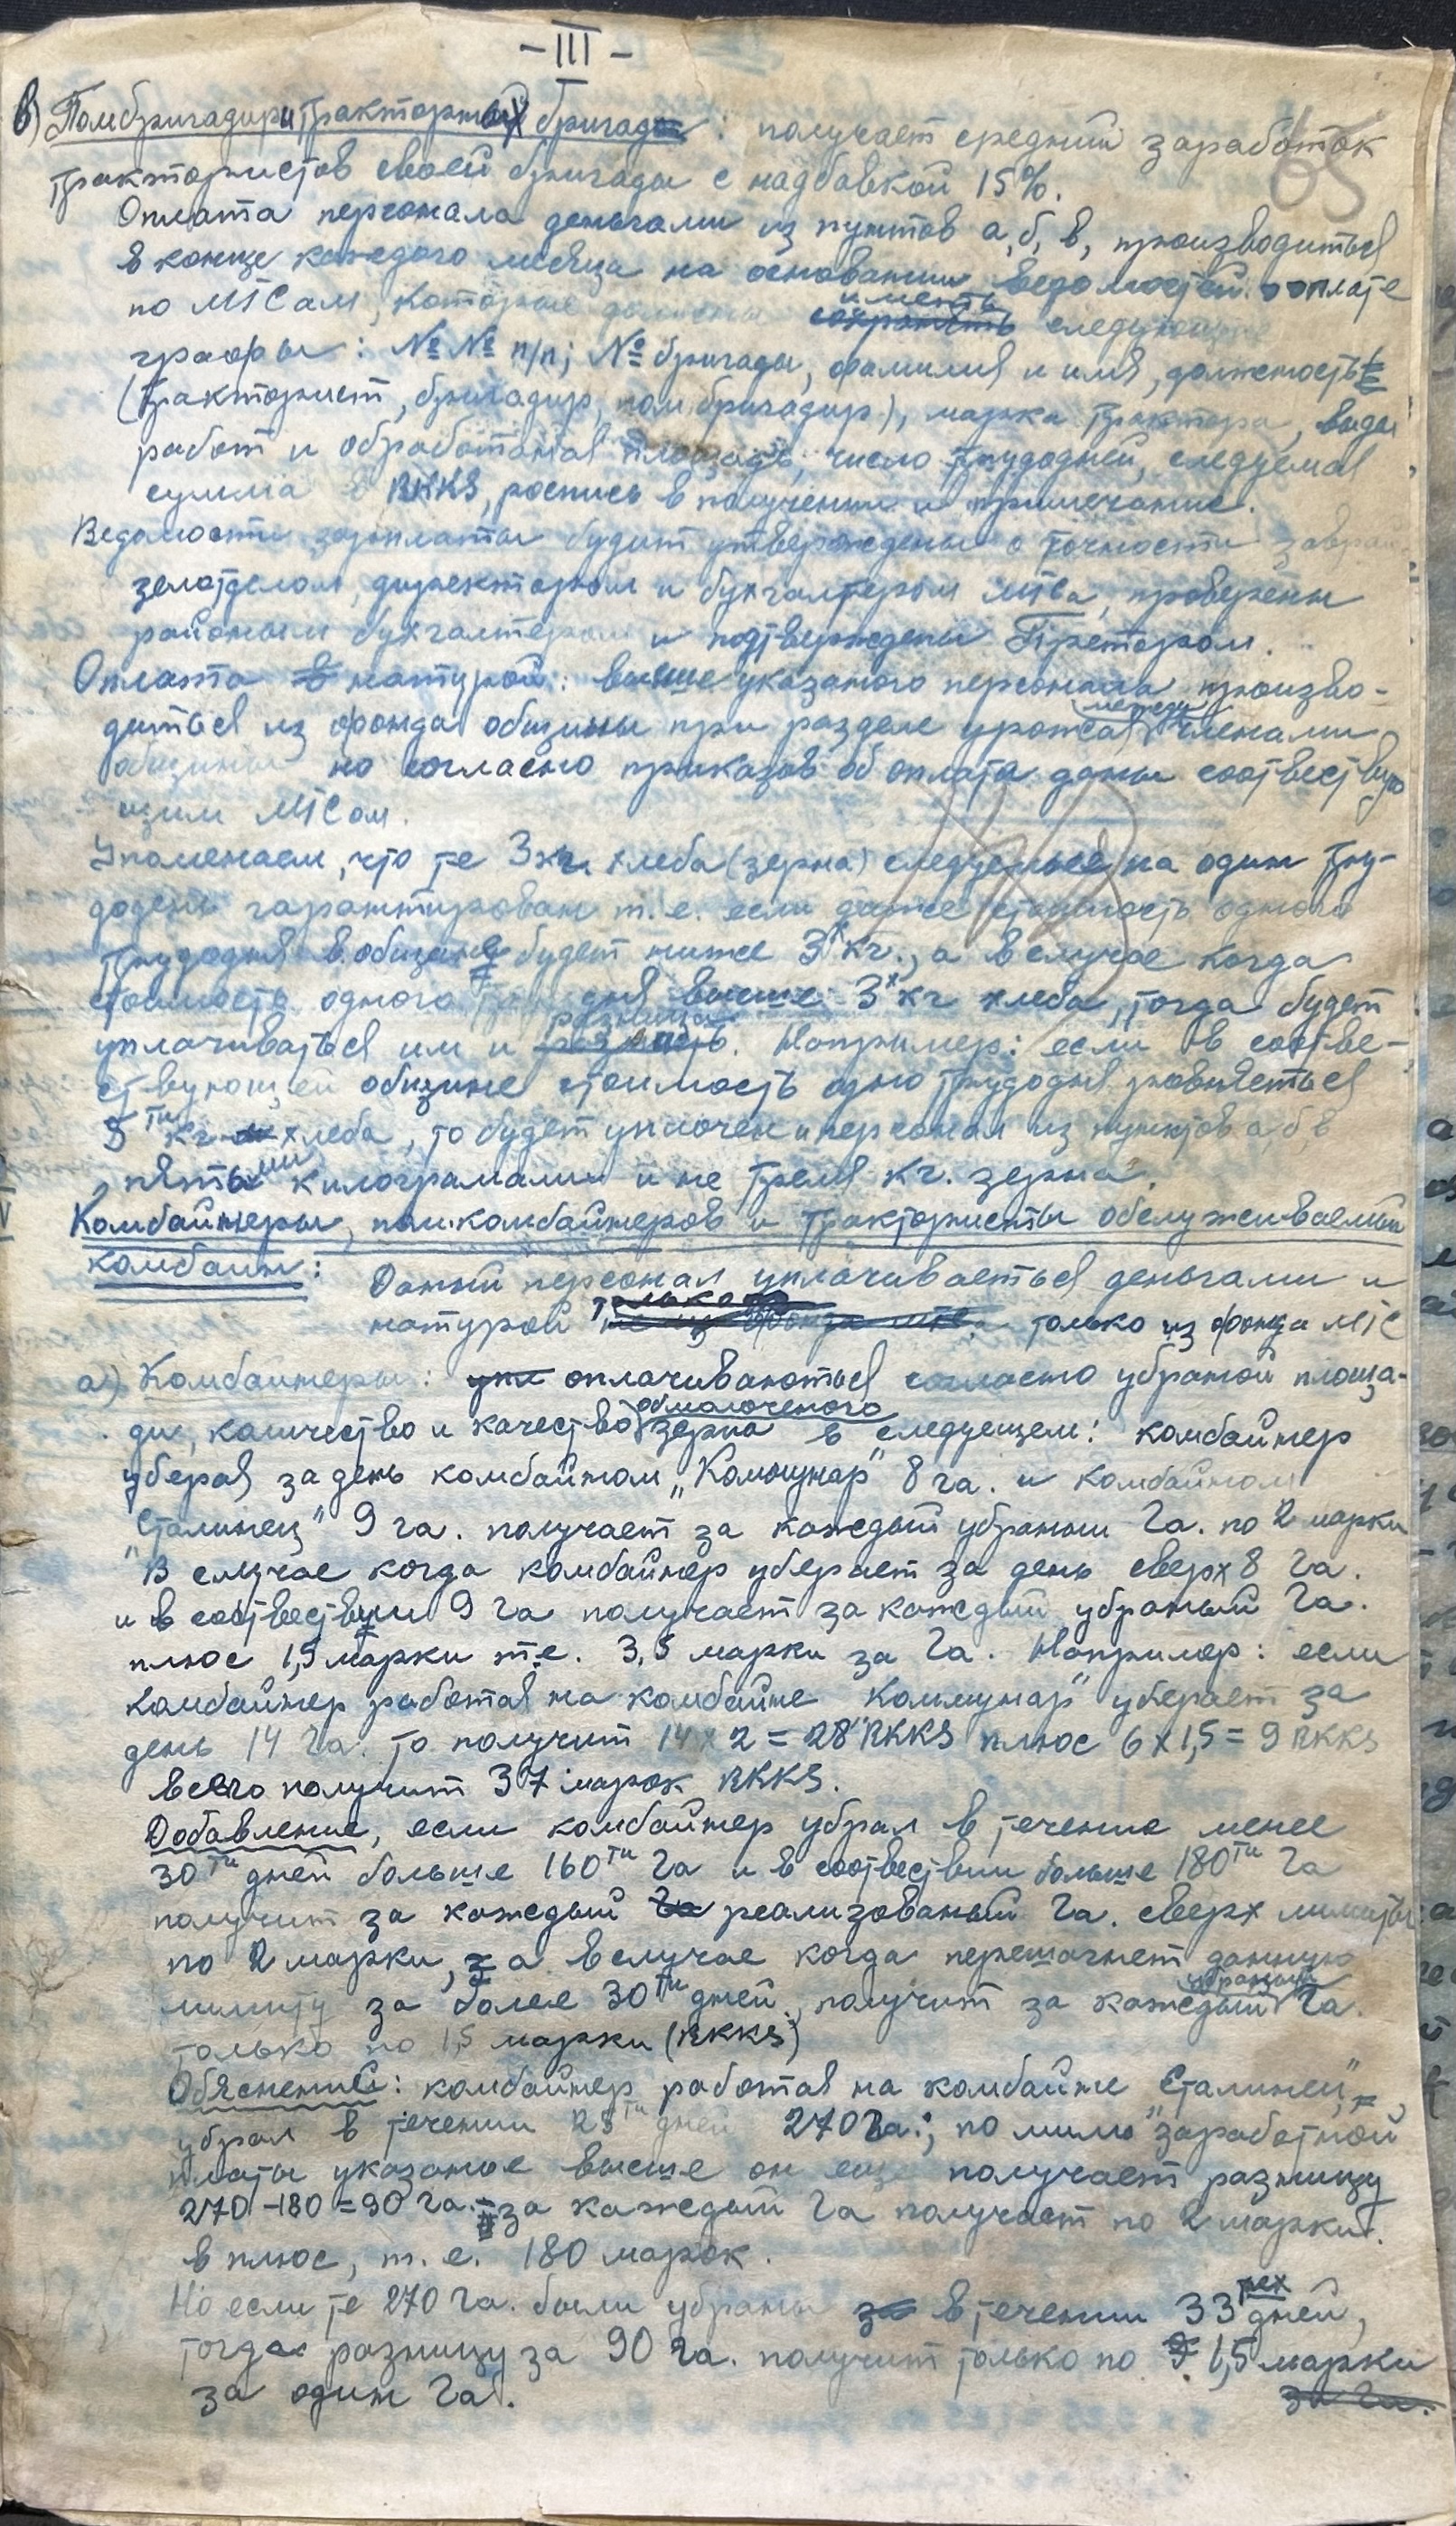 - III -
65
в) Помбригадири тракторных бригад: получает средний заработок
трактористов своей бригады с надбавкой 15%.
Оплата персонала деньгами из пунктов а, б, в, производиться
в конце каждого месяца на основании ведомостей оплате
по МТСам, которые должны сохранять иметь следующие
графы: №№ п/п; № бригады, фамилия и имя, должность
(тракторист, бригадир, помбригадир), марка трактора, виды
работ и обработаная площадь, число трудодней, следуемая
сумма в RKKS, роспись в получении и примечание.
Ведомости зарплаты будут утверждены о точности
земотделом, директором и бухгалтером МТСа, проверены
районым бухгалтером и подтверждены Претором.
Оплата в натурой: выше указаного персонала произво-
диться из фонда общины при разделе урожая между членами
общины но согласно приказов об оплата даны соотвествую
щим МТСам.
Упоменаем, что те 3 кг. хлеба (зерна) следуемые на один тру-
додень гарантирован т.е. если даже стоимость одного
трудодня в общине будет ниже 3х кг., а в случае когда
стоимость одного трудодня выше 3х кг хлеба, тогда будет
уплачиваться им и разность разница. Например: если в соотве-
ствующей общине стоимость одно трудодня ровняеться
5ти кг хлеба, то будет уплочен и персонал из пунктов а, б, в
пятьми килограмами и не тремя кг. зерна.
Комбайнеры, пом.комбайнеров и трактористы обслуживаемый
комбайн: Даный персонал уплачиваеться деньгами и
натурой только не из фонда МТС. только из фонда МТС
а) Комбайнеры: упл оплачиваються согласно убраной площа-
ди, количество и качество обмолоченого зерна в следуещем: комбайнер
уберая за день комбайном „Коммунар" 8 га. и комбайном
„Сталинец" 9 га. получает за каждый убраный Га. по 2 марки
В случае когда комбайнер уберает за день сверх 8 Га.
и в соотвествии 9 Га получает за каждый убраный Га.
плюс 1,5 марки т.е. 3,5 марки за Га. Например: если
Комбайнер работая на комбайне Коммунар" уберает за
день 14 Га. то получит 14 x 2 = 28 RKKS плюс 6 x 1,5 = 9 RKKS
всего получит 37 марок RKKS.
Добавление, если комбайнер убрал в течение менее
30ти дней больше 160ти Га и в соотвествии больше 180ти Га
получит за каждый Га реализованый Га. сверх лимиты
по 2 марки, а в случае когда перешагнет данную
лимиту за более 30ти дней, получит за каждый убраный Га.
только по 1,5 марки (RKKS)
Обяснений: комбайнер работая на комбайне „Сталинец",
убрал в течении 25ти дней 270 Га.; по мимо заработной
платы указаное выше он еще получает разницу
270-180=90 Га. за каждый Га получает по 2 марки.
в плюс, т.е. 180 марок.
Но если те 270 Га. были убраны за в течении 33трех дней,
тогда разницу за 90 га. получит только по 2 1,5 марки
за один Га. за Га.